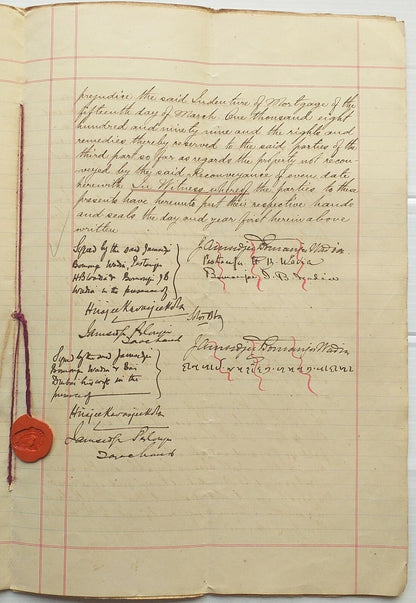 prejudice the said Indenture of Mortgage of the
fifteenth day of March One thousand eight
hundred and ninety nine and the rights and
remedies thereby reserved to the said parties of the
third part so far as regards the property not recon-
veyed by the said Reconveyance of even date
herewith In Witness whereof the parties to these
presents have hereunto put their respective hands
and seals the day and year first herein above
written
Signed by the said Jamsedji
Bomanji Wadia, Pestonji
H B Wadia & Bomanji D B
Wadia in the presence of
Jamsedji Bomanji Wadia
Pestonji H B Wadia
Bomanji D. B. Wadia
Hirjee Kavasjee
Jamsedji
Signed by the said Jamsedji
Bomanji Wadia & Bai
his wife in the
presence of
Jamsedji Bomanji Wadia
Hirjee Kavasjee
Jamsedji